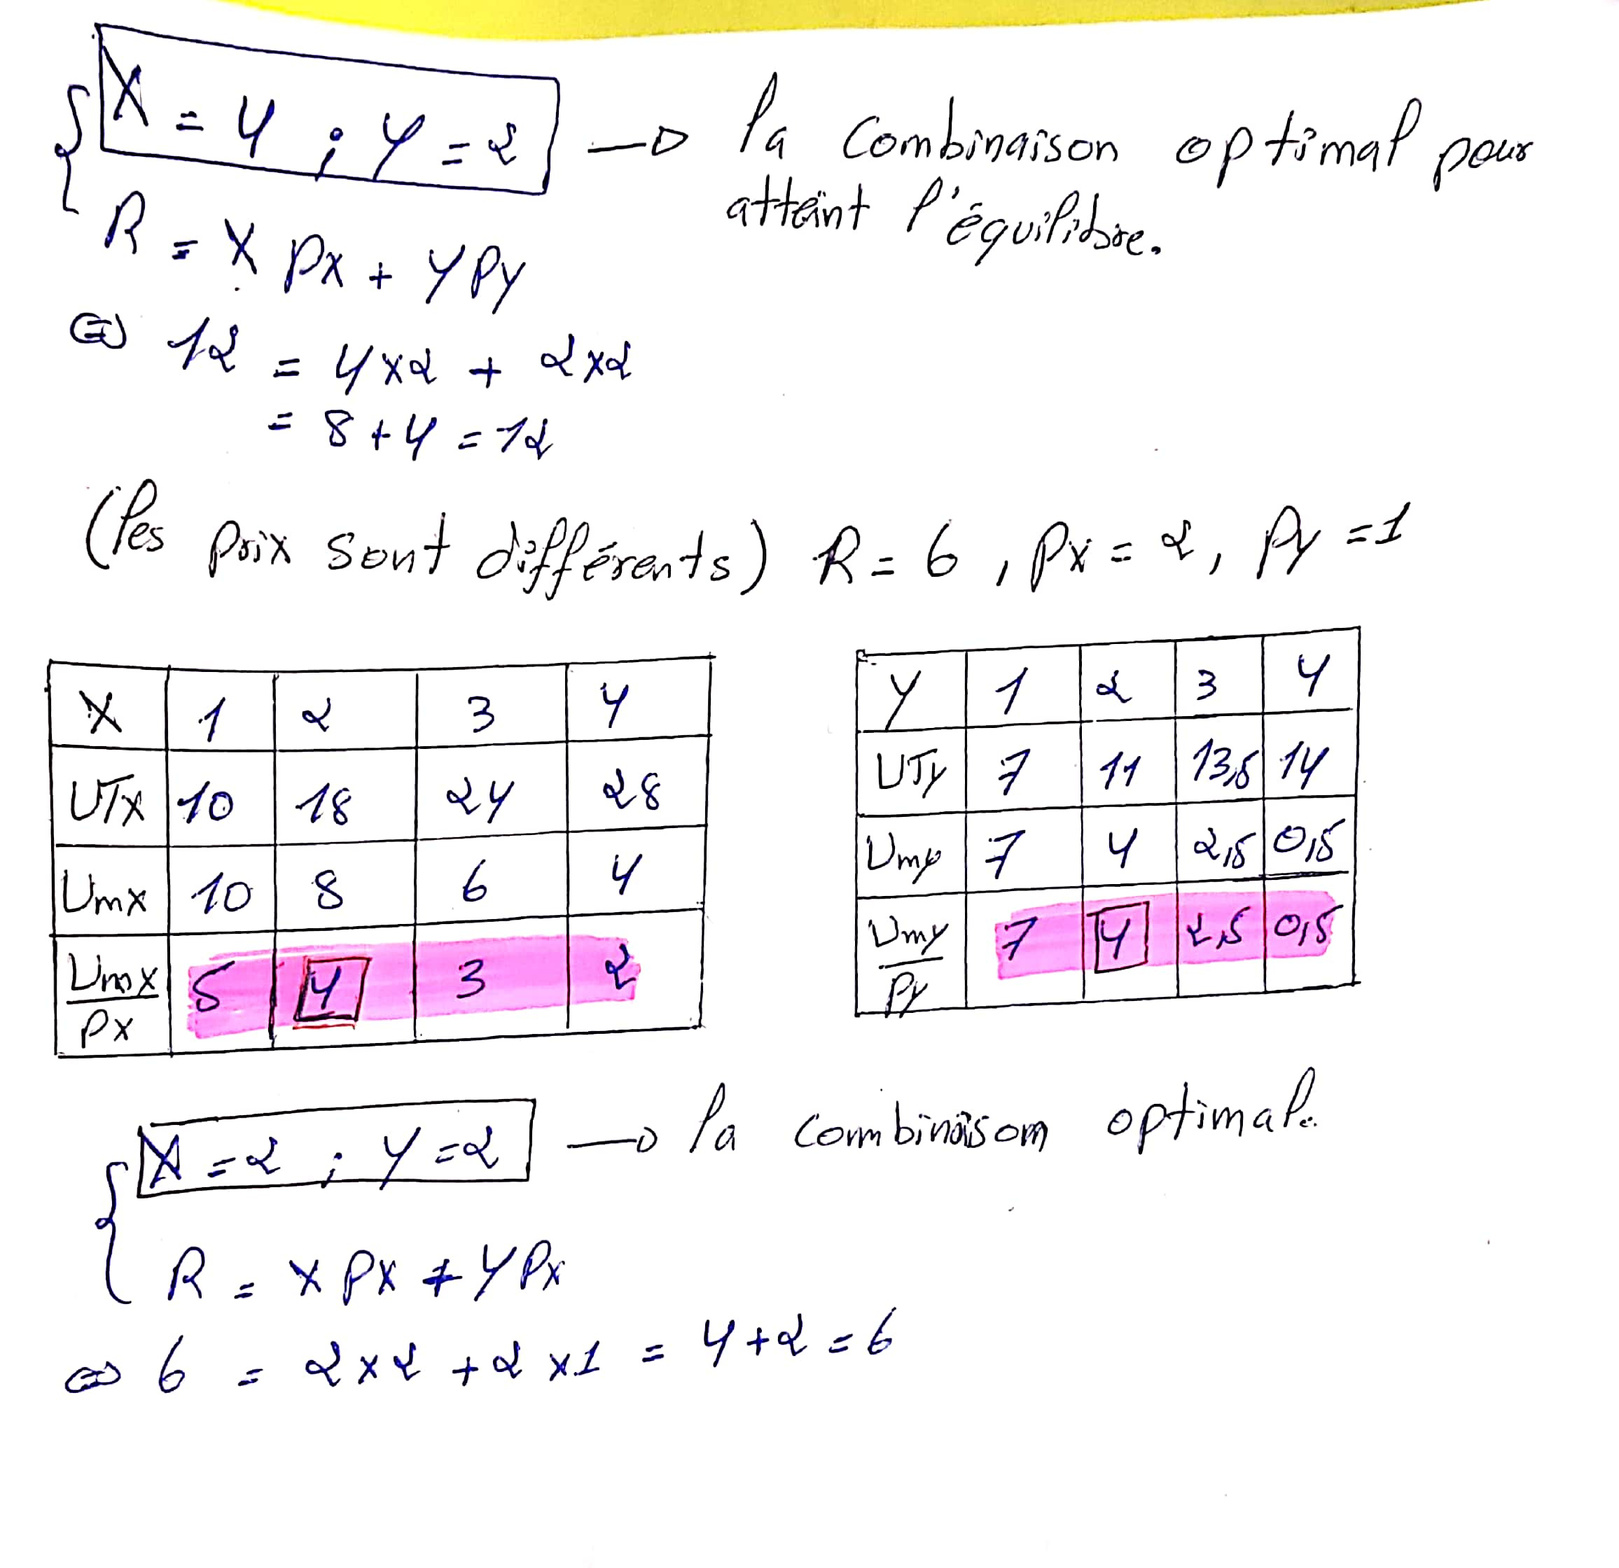 X = 4 ; Y = 2 → la combinaison optimal pour
atteint l'équilibre.
R = X Px + Y Py
⇔ 12 = 4x2 + 2x2
= 8+4 = 12
(les prix sont différents) R = 6 , Px = 2, Py = 1
X 1 2 3 4
UTx 10 18 24 28
Umx 10 8 6 4
Umx/Px 5 4 3 2
Y 1 2 3 4
UTy 7 11 13,5 14
Umy 7 4 2,5 0,5
Umy/Py 7 4 2,5 0,5
X = 2 ; Y = 2 → la combinaisom optimal.
R = X Px + Y Px
⇔ 6 = 2x2 + 2x1 = 4+2 = 6